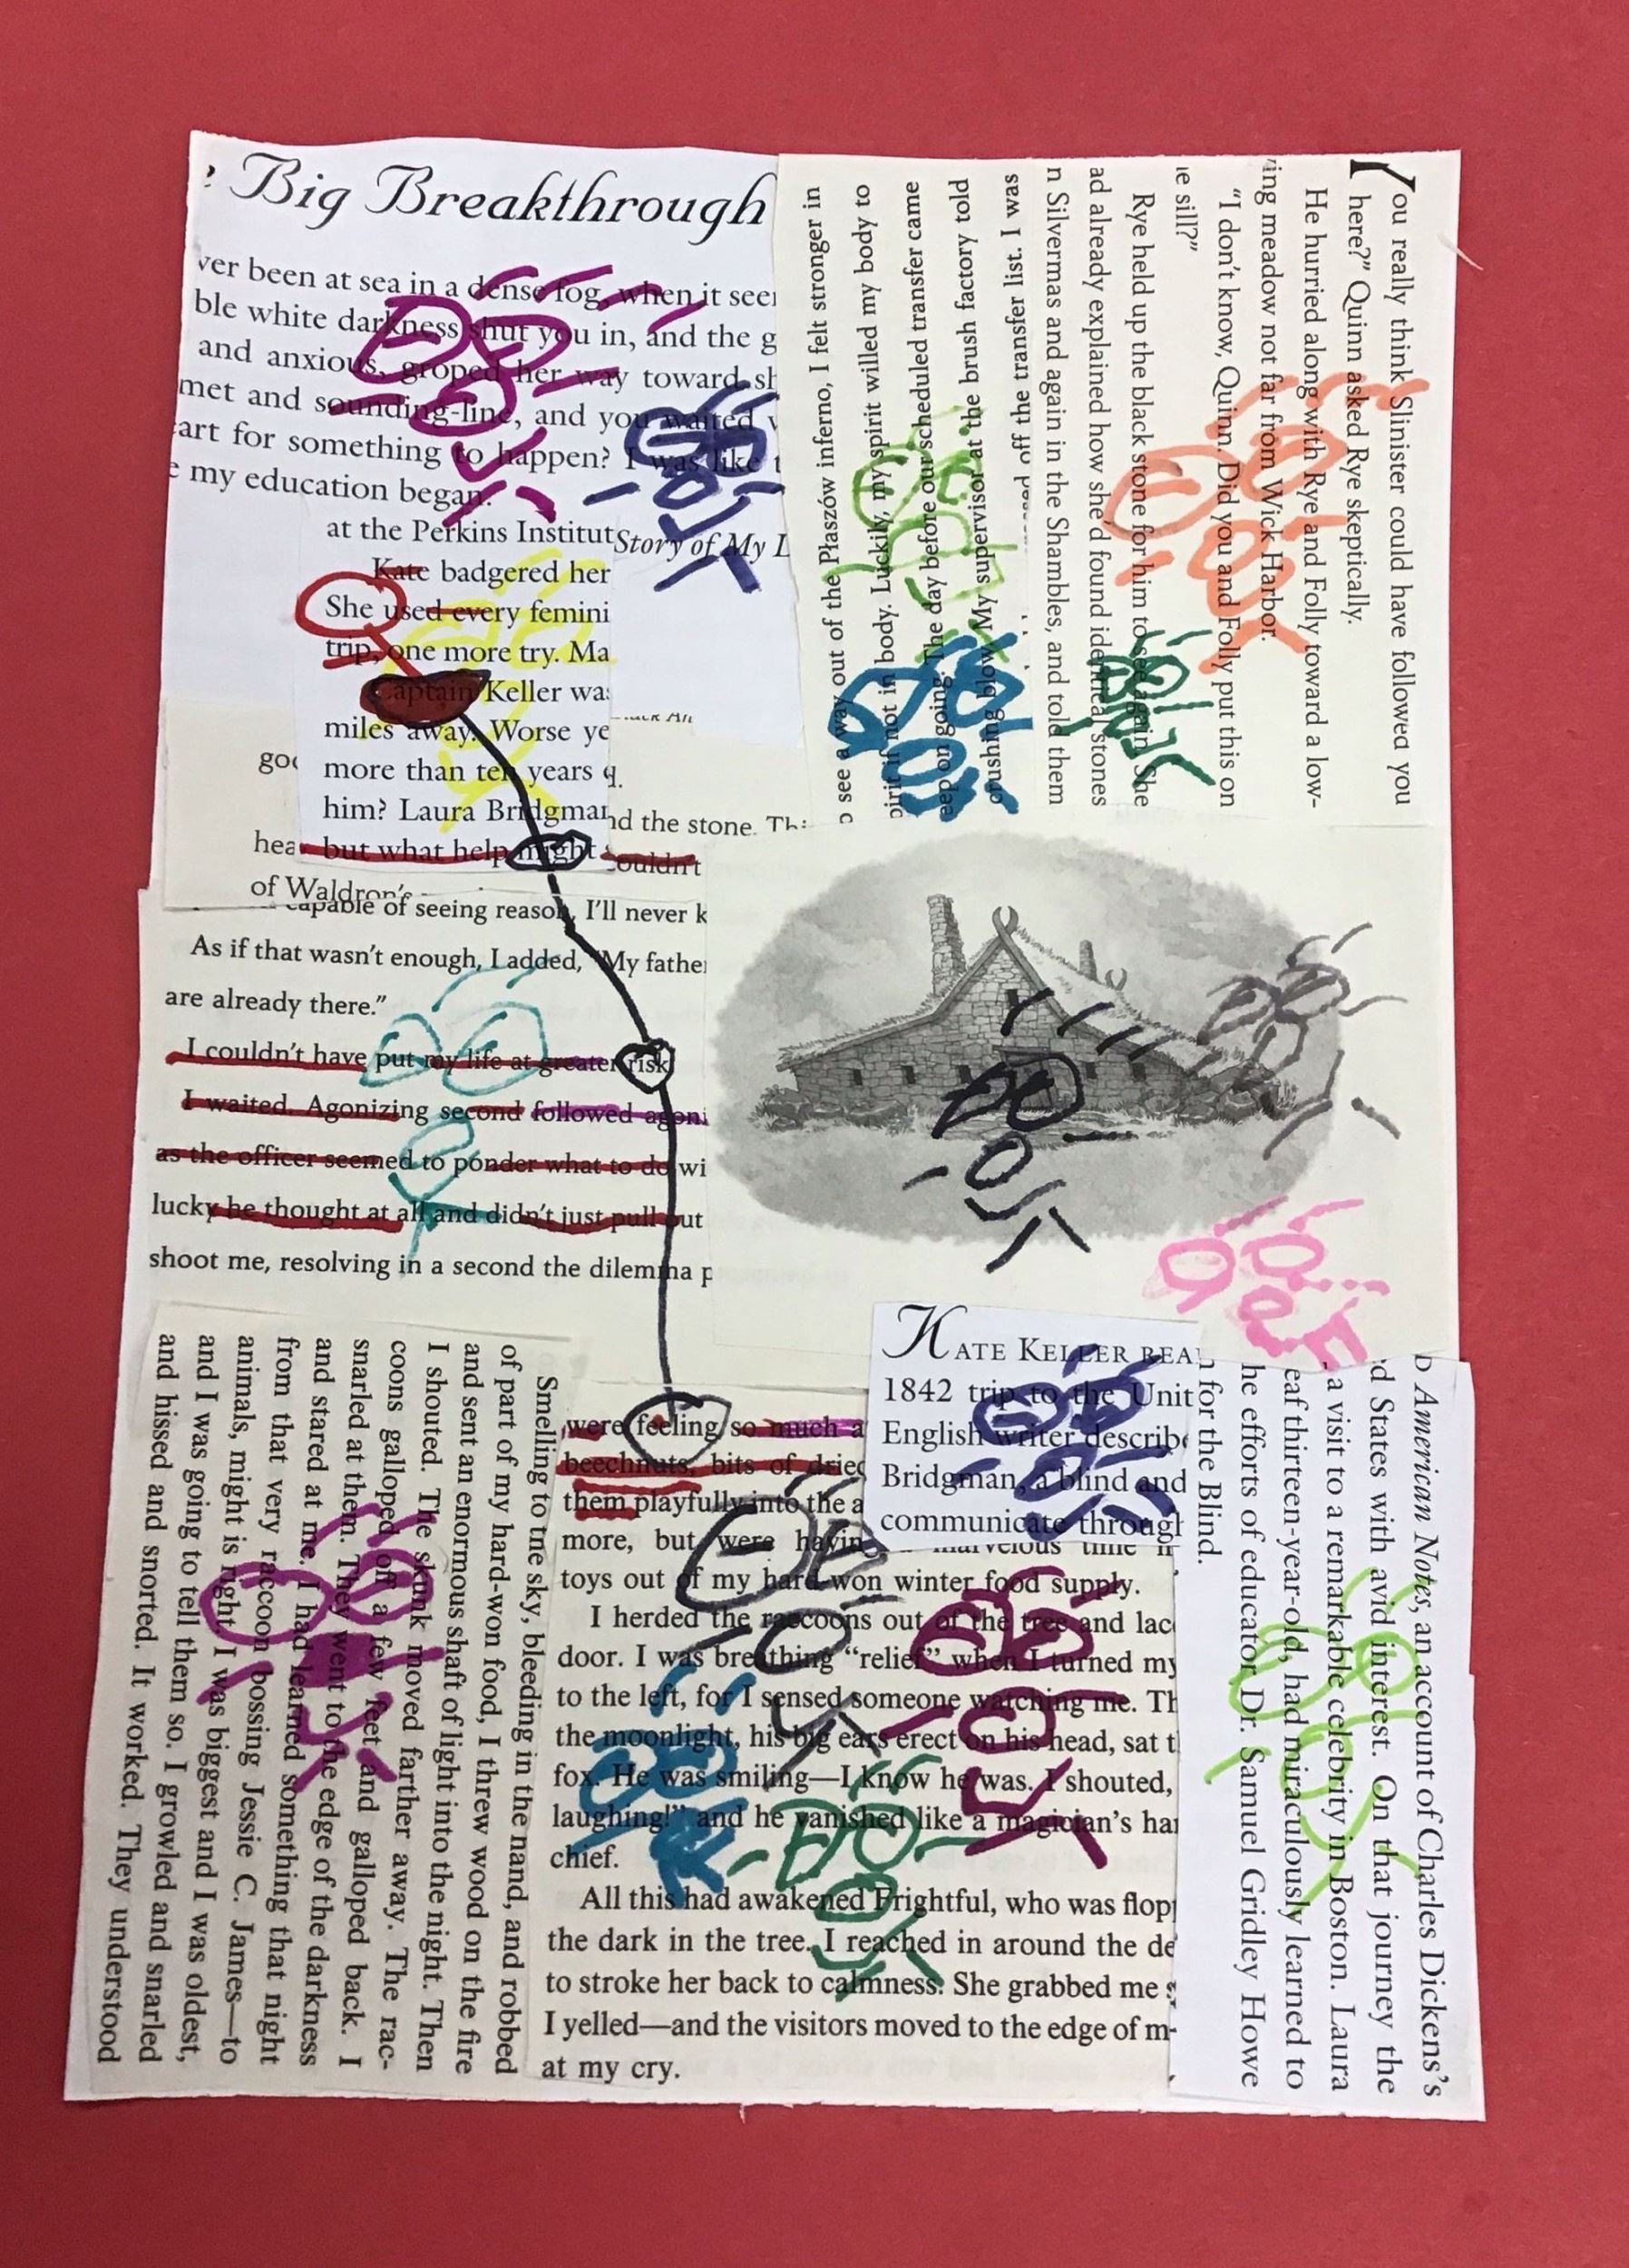 Big Breakthrough
ver been at sea in a dense fog, when it seem
ble white darkness shut you in, and the g
and anxious, groped her way toward sh
met and sounding-line, and you waited
art for something to happen? I was like t
e my education began.
Story of My L
at the Perkins Institut
Kate badgered her
She used every femini
trip, one more try. Ma
Captain Keller wa
miles away. Worse ye
more than ten years
him? Laura Bridgman
but what help might
goo
nd the stone. Thi
hea
couldn't
of Waldron's
capable of seeing reason, I'll never k
As if that wasn't enough, I added, "My father
are already there."
I couldn't have put my life at greater risk
I waited. Agonizing second followed agoni
as the officer seemed to ponder what to do wi
lucky he thought at all and didn't just pull out
shoot me, resolving in a second the dilemma p
o see a way out of the Płaszów inferno, I felt stronger in
pirit if not in body. Luckily, my spirit willed my body to
eep on going. The day before our scheduled transfer came
crushing blow. My supervisor at the brush factory told
off the transfer list. I was
You really think Slinister could have followed you
here?" Quinn asked Rye skeptically.
He hurried along with Rye and Folly toward a low-
ing meadow not far from Wick Harbor.
"I don't know, Quinn. Did you and Folly put this on
e sill?"
Rye held up the black stone for him to see again. She
ad already explained how she'd found identical stones
n Silvermas and again in the Shambles, and told them
Smelling to the sky, bleeding in the hand, and robbed
of part of my hard-won food, I threw wood on the fire
and sent an enormous shaft of light into the night. Then
I shouted. The skunk moved farther away. The rac-
coons galloped off a few feet and galloped back. I
snarled at them. They went to the edge of the darkness
and stared at me. I had learned something that night
from that very raccoon bossing Jessie C. James—to
animals, might is right. I was biggest and I was oldest,
and I was going to tell them so. I growled and snarled
and hissed and snorted. It worked. They understood
were feeling so much a
beechnuts, bits of dried
them playfully into the a
more, but were havin
marvelous time
toys out of my hard-won winter food supply.
I herded the raccoons out of the tree and lac
door. I was breathing "relief" when I turned my
to the left, for I sensed someone watching me. Th
the moonlight, his big ears erect on his head, sat t
fox. He was smiling—I know he was. I shouted,
laughing!" and he vanished like a magician's ha
chief.
All this had awakened Frightful, who was flop
the dark in the tree. I reached in around the de
to stroke her back to calmness. She grabbed me
I yelled—and the visitors moved to the edge of m
at my cry.
KATE KELLER REA
1842 trip to the Unit
English writer describe
Bridgman, a blind and
communicate through
American Notes, an account of Charles Dickens's
d States with avid interest. On that journey the
a visit to a remarkable celebrity in Boston. Laura
eaf thirteen-year-old, had miraculously learned to
he efforts of educator Dr. Samuel Gridley Howe
n for the Blind.